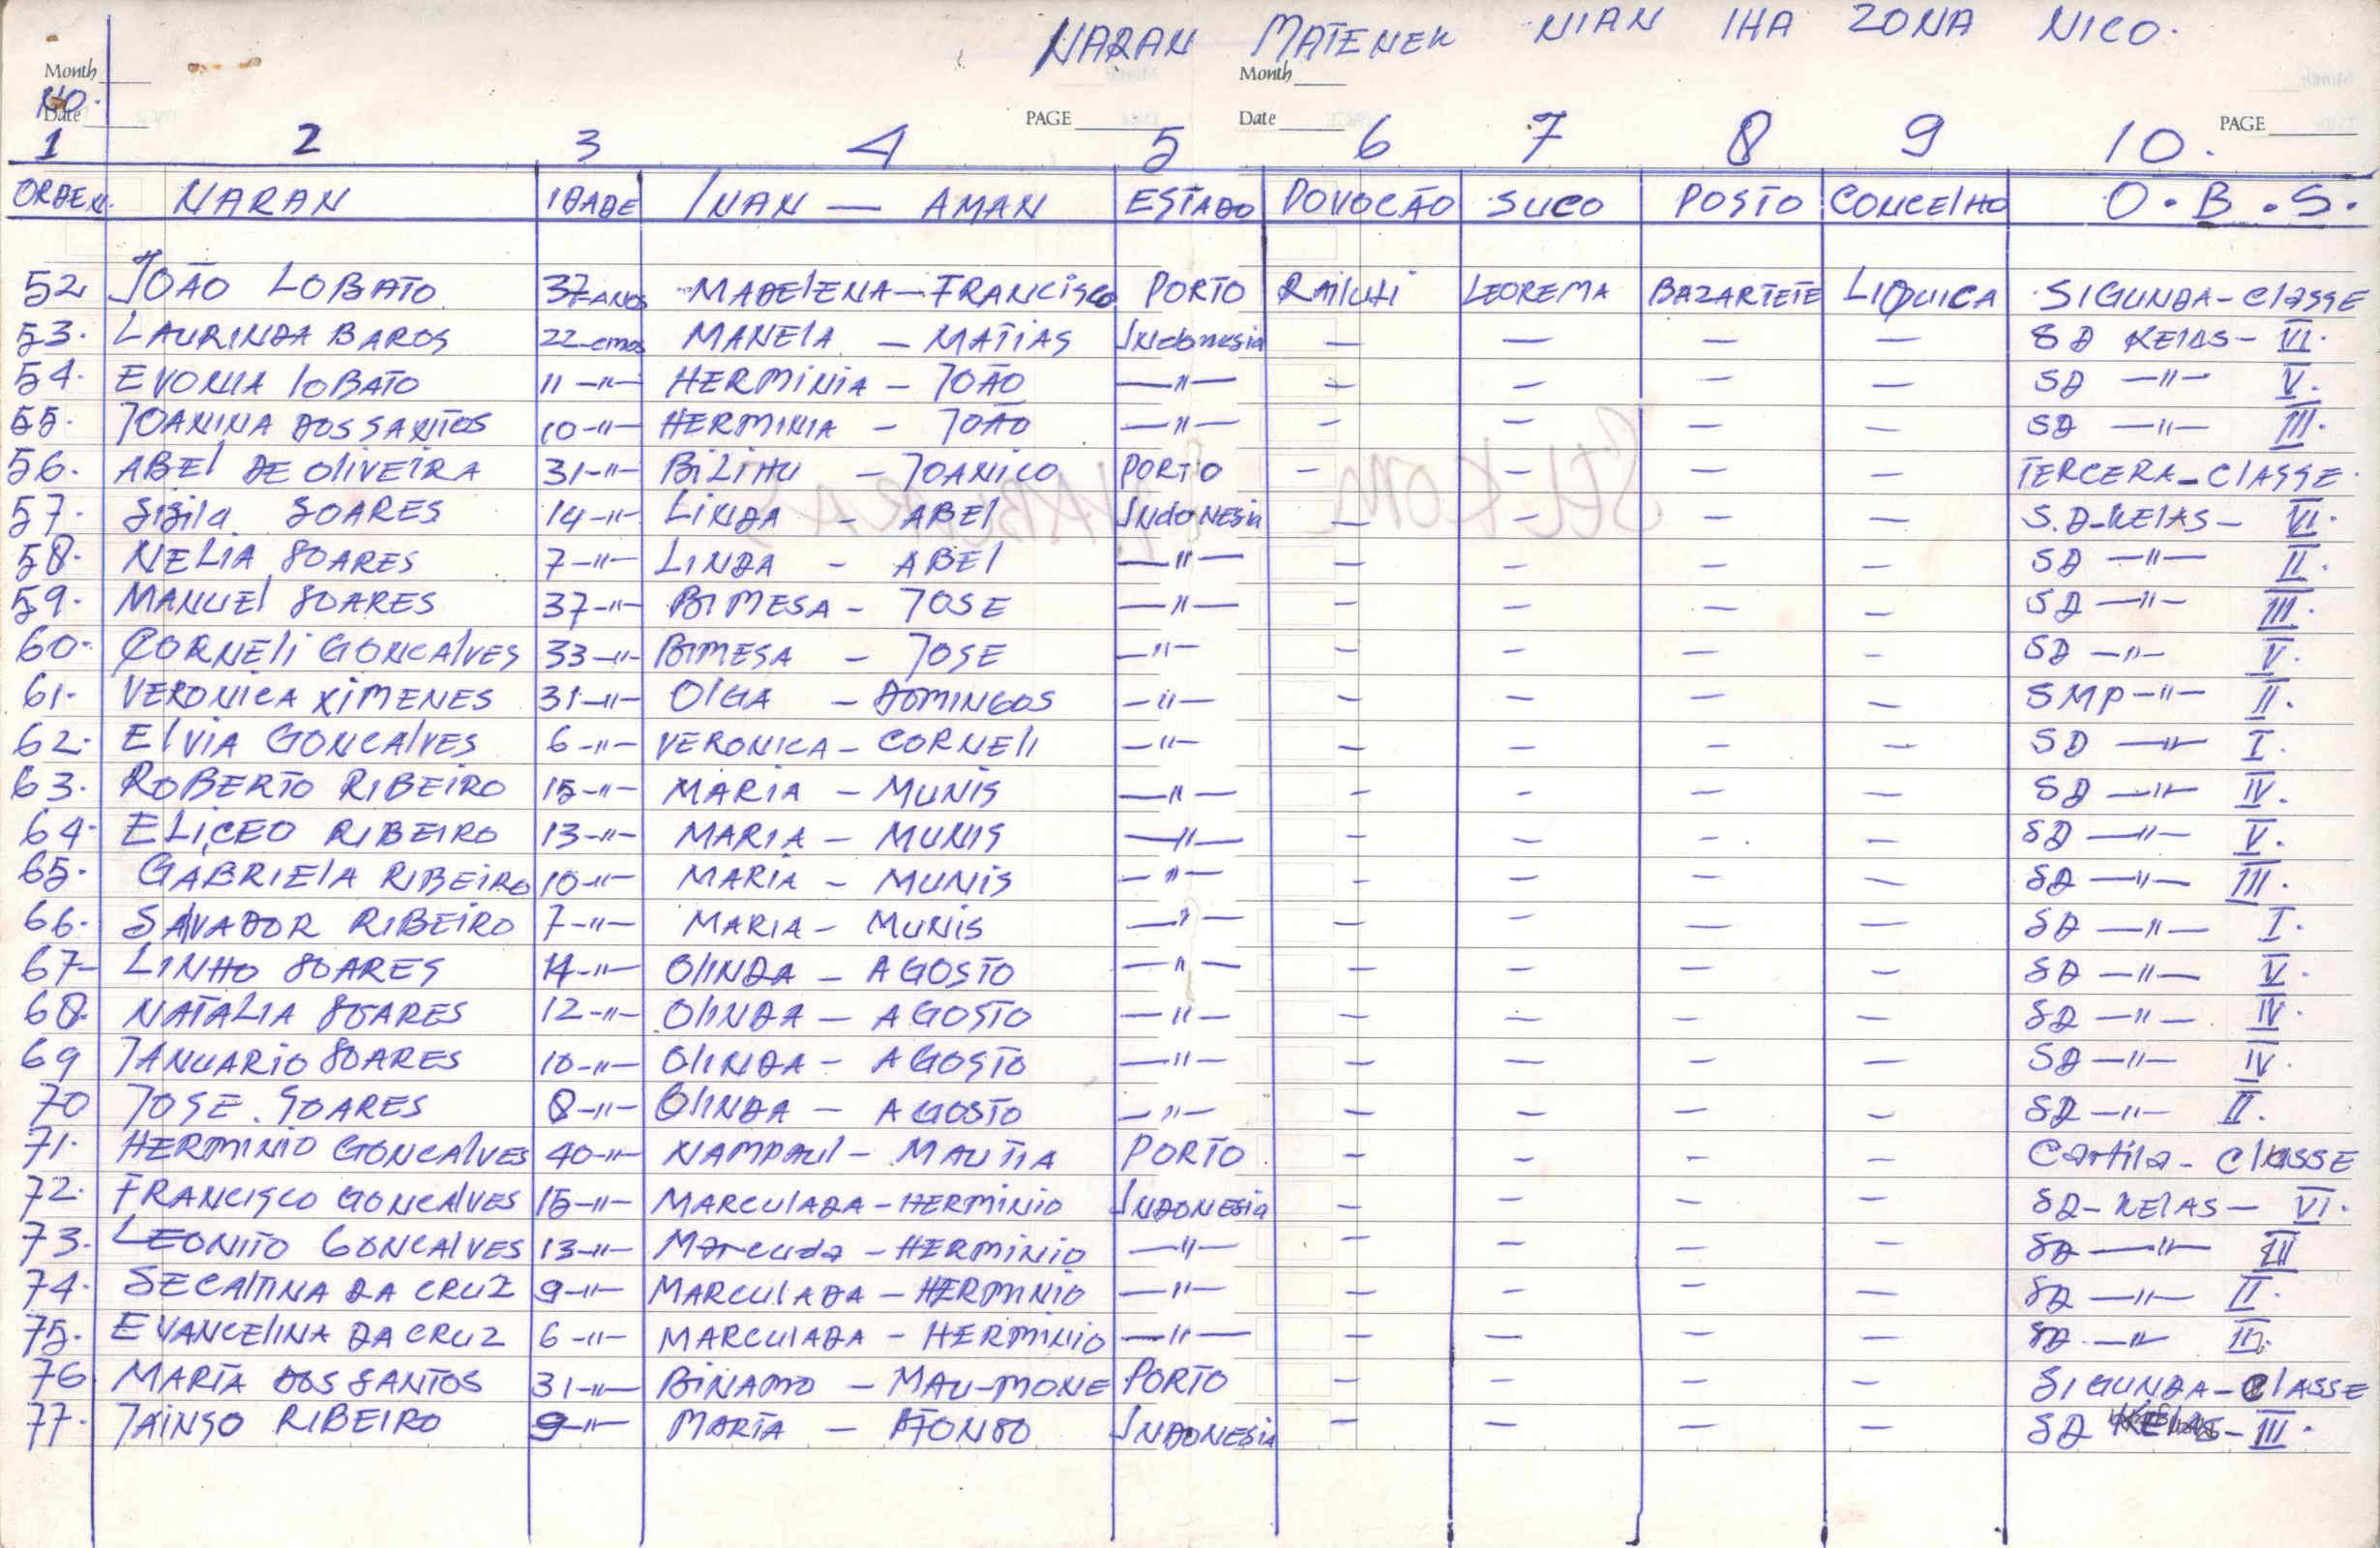 NARAN MATENEK NIAN IHA ZONA NICO.
Month Month
NO.
Date PAGE Date PAGE
1 2 3 4 5 6 7 8 9 10.
ORDEN. NARAN IDADE INAN — AMAN ESTADO POVOCÃO SUCO POSTO CONCELHO O.B.S.
52 JOÃO LOBATO 37 ANOS MADELENA — FRANCISCO PORTO Railuti LEOREMA BAZARTETE LIQUICA SIGUNDA - classe
53. LAURINDA BAROS 22-anos MANELA — MATIAS Indonesia — — — — SD KELAS - VI.
54. EVONIA LOBATO 11 -"- HERMINIA - JOÃO —"— — — — — SD —"— V.
55. JOANINA DOS SANTOS 10 -"- HERMINIA - JOÃO —"— — — — — SD —"— III.
56. ABEL DE OLIVEIRA 31 -"- BILIHU - JOANICO PORTO — — — — TERCERA - CLASSE.
57. Sisila SOARES 14 -"- LINDA - ABEL INDONESIA — — — — S.D-KELAS - VI.
58. NELIA SOARES 7 -"- LINDA - ABEL —"— — — — — SD —"— II.
59. MANUEL SOARES 37 -"- BIMESA - JOSE —"— — — — — SD —"— III.
60. CORNELI GONCALVES 33 -"- BIMESA - JOSE —"— — — — — SD —"— V.
61. VERONICA XIMENES 31 -"- OLGA - DOMINGOS —"— — — — — SMP —"— II.
62. ELVIA GONCALVES 6 -"- VERONICA - CORNELI —"— — — — — SD —"— I.
63. ROBERTO RIBEIRO 15 -"- MARIA - MUNIS —"— — — — — SD —"— IV.
64. ELICEO RIBEIRO 13 -"- MARIA - MUNIS —"— — — — — SD —"— V.
65. GABRIELA RIBEIRO 10 -"- MARIA - MUNIS —"— — — — — SD —"— III.
66. SALVADOR RIBEIRO 7 -"- MARIA - MUNIS —"— — — — — SD —"— I.
67 - LINHO SOARES 14 -"- OLINDA - AGOSTO —"— — — — — SD —"— V.
68. NATALIA SOARES 12 -"- OLINDA - AGOSTO —"— — — — — SD —"— IV.
69 JANUARIO SOARES 10 -"- OLINDA - AGOSTO —"— — — — — SD —"— IV.
70 JOSE. SOARES 8 -"- OLINDA - AGOSTO —"— — — — — SD —"— II.
71. HERMINIO GONCALVES 40 -"- NAMPAUL - MAUTIA PORTO — — — — Cartila - CLASSE
72. FRANCISCO GONCALVES 15 -"- MARCULADA - HERMINIO INDONESIA — — — — SD - KELAS - VI.
73. LEONITO GONCALVES 13 -"- Marcuda - HERMINIO —"— — — — — SD —"— III
74. SECALTINA DA CRUZ 9 -"- MARCULADA - HERMINIO —"— — — — — SD —"— II.
75. EVANCELINA DA CRUZ 6 -"- MARCULADA - HERMINIO —"— — — — — SD —"— III.
76 MARIA DOS SANTOS 31 -"- BINAMO - MAU-MONE PORTO — — — — SIGUNDA - CLASSE
77. JAINSO RIBEIRO 9 -"- MARIA - AFONSO INDONESIA — — — — SD KELAS - III.